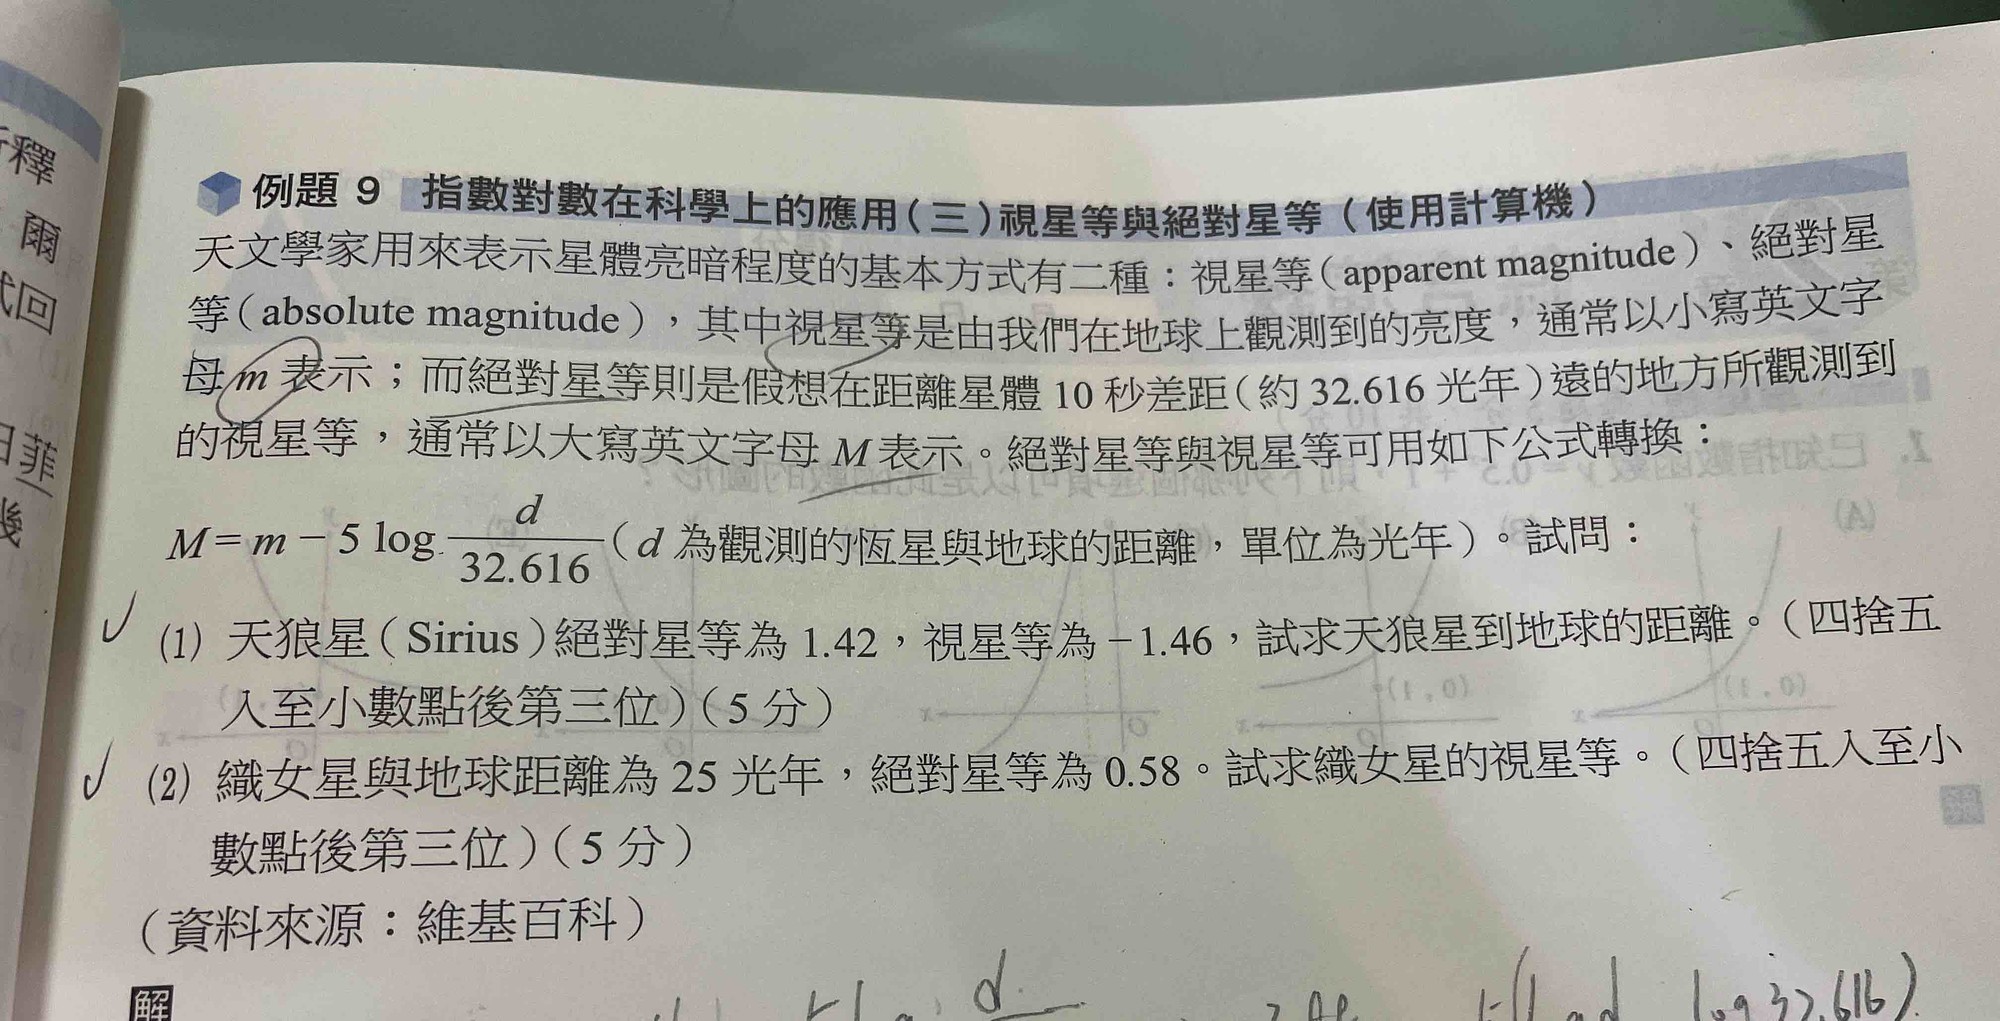 例題 9 指數對數在科學上的應用(三)視星等與絕對星等(使用計算機)
天文學家用來表示星體亮暗程度的基本方式有二種:視星等(apparent magnitude)、絕對星
等(absolute magnitude),其中視星等是由我們在地球上觀測到的亮度,通常以小寫英文字
母 m 表示;而絕對星等則是假想在距離星體 10 秒差距(約 32.616 光年)遠的地方所觀測到
的視星等,通常以大寫英文字母 M 表示。絕對星等與視星等可用如下公式轉換:
M=m-5 log d/32.616 (d 為觀測的恆星與地球的距離,單位為光年)。試問:
(1) 天狼星(Sirius)絕對星等為 1.42,視星等為-1.46,試求天狼星到地球的距離。(四捨五
入至小數點後第三位)(5 分)
(2) 織女星與地球距離為 25 光年,絕對星等為 0.58。試求織女星的視星等。(四捨五入至小
數點後第三位)(5 分)
(資料來源:維基百科)
解
log 32.616)
釋
爾
式回
菲
幾